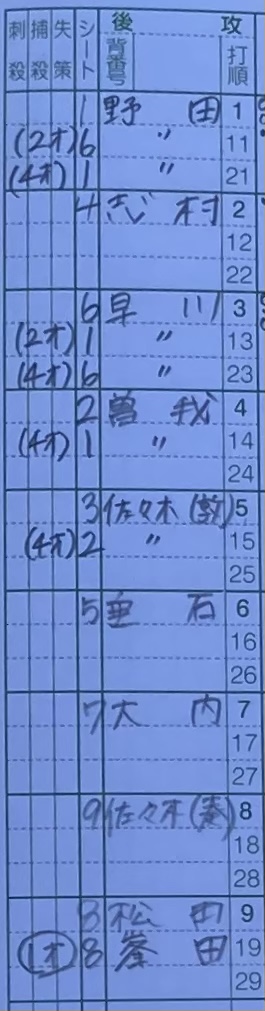 後 攻
刺殺 捕殺 失策 シート 背番号 打順
1 野田 1
(2オ) 6 〃 11
(4オ) 1 〃 21
4 志村 2
12
22
6 早川 3
(2オ) 1 〃 13
(4オ) 6 〃 23
2 曽我 4
(4オ) 1 〃 14
24
3 佐々木(敦) 5
(4オ) 2 〃 15
25
5 垂石 6
16
26
7 大内 7
17
27
9 佐々木(奏) 8
18
28
8 松田 9
(1オ) 8 峯田 19
29